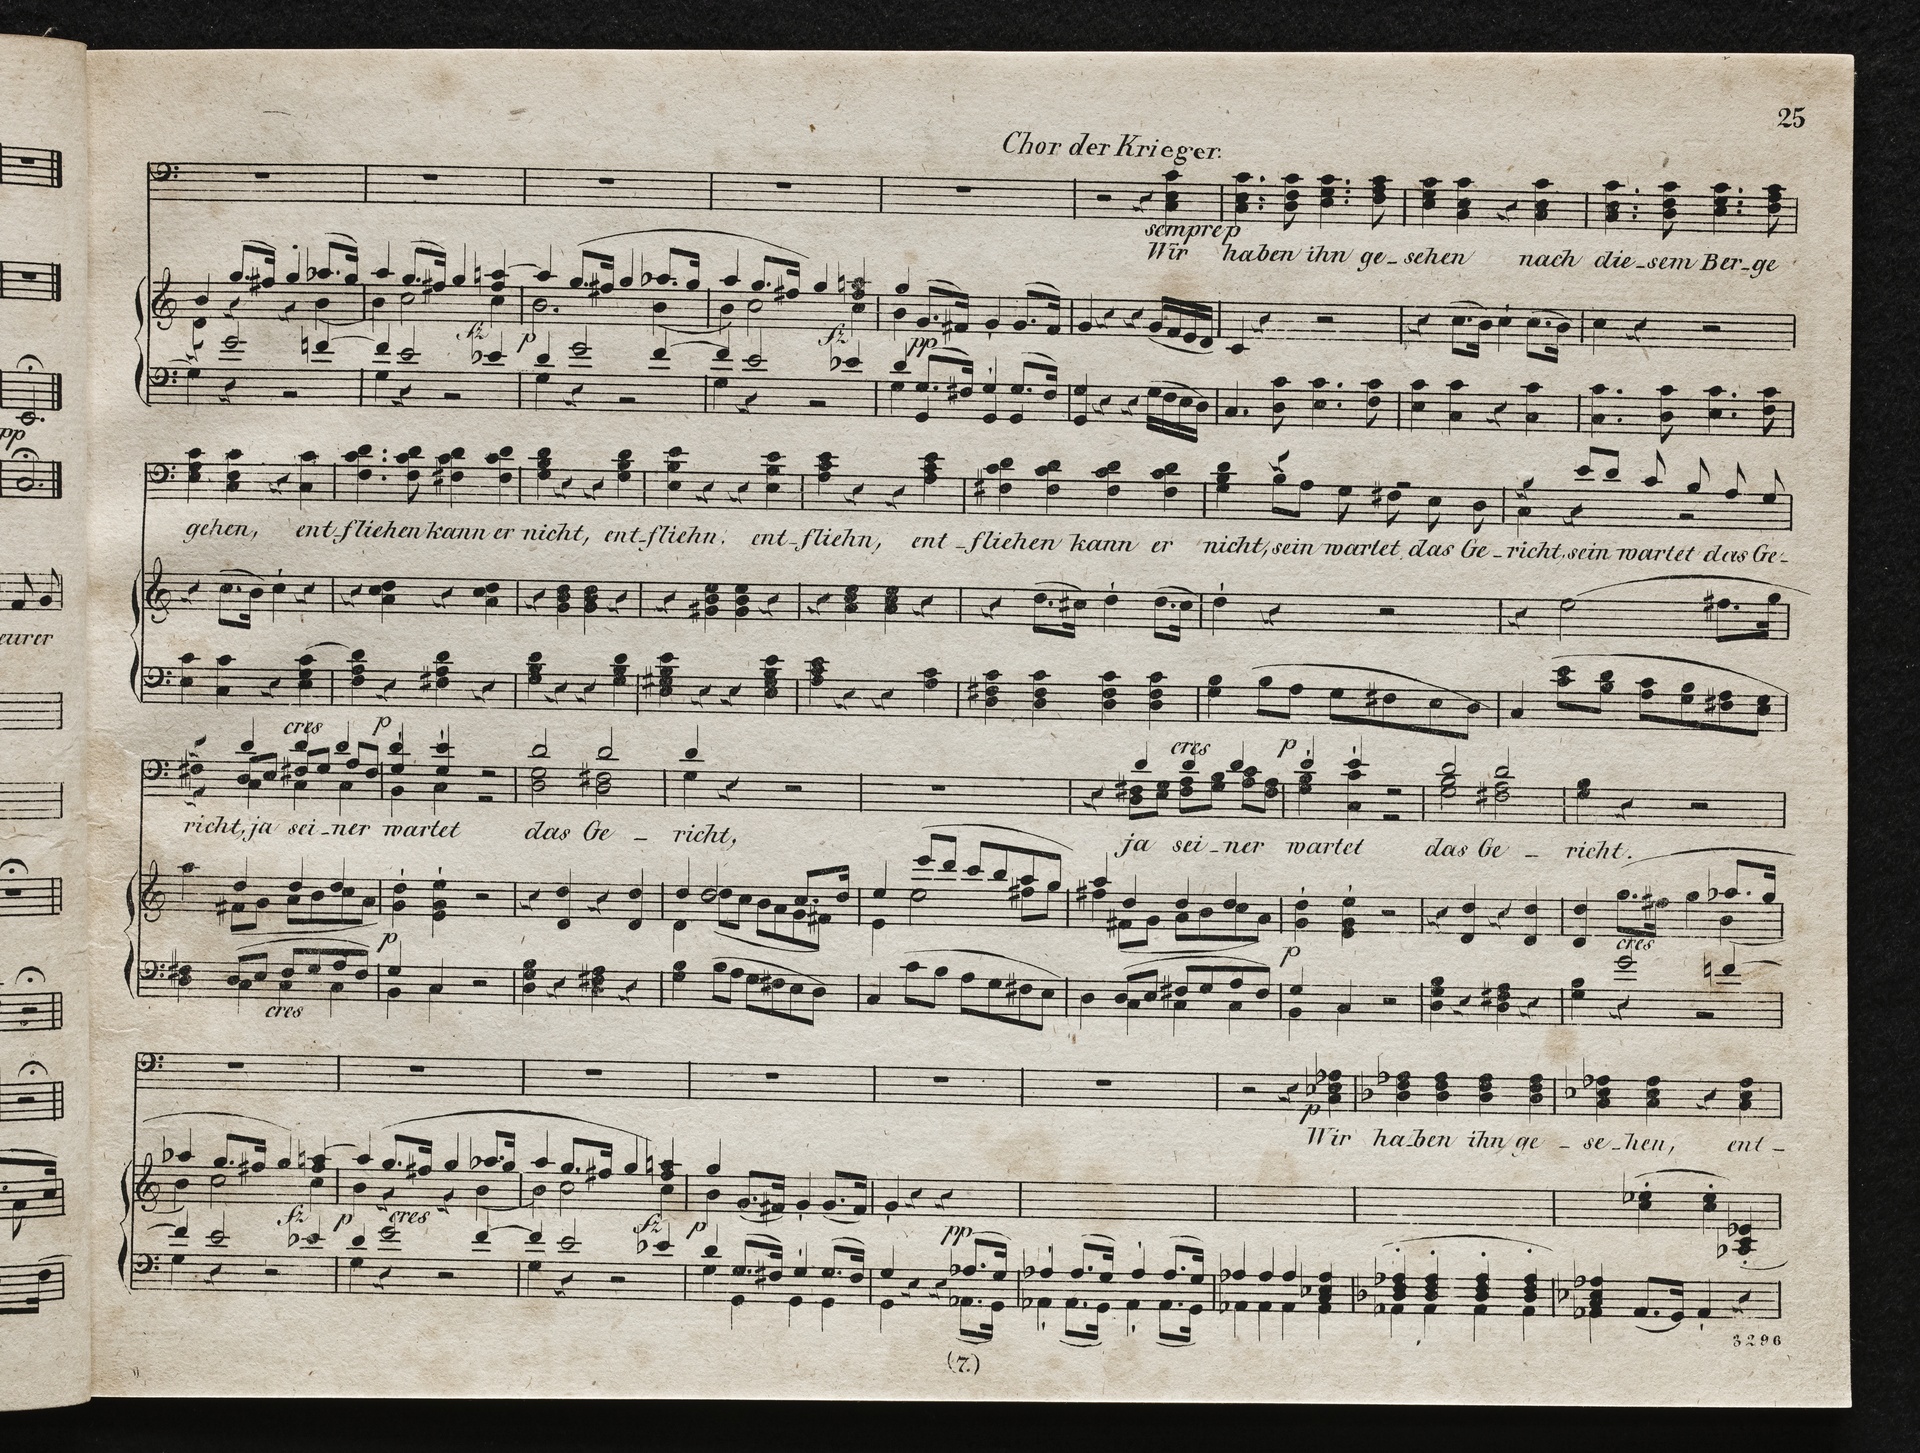 25
Chor der Krieger.
sempre p
Wir haben ihn ge_sehen nach die_sem Ber_ge
sfz p sfz pp
pp
gehen, ent_fliehen kann er nicht, ent_fliehn, ent_fliehn, ent_fliehen kann er nicht, sein wartet das Ge_richt, sein wartet das Ge_
eurer
cres p cres p
richt, ja sei_ner wartet das Ge_richt, ja sei_ner wartet das Ge_richt.
p p cres
cres
p
Wir ha_ben ihn ge_se_hen, ent_
sfz p cres sfz p pp
3296
(7.)